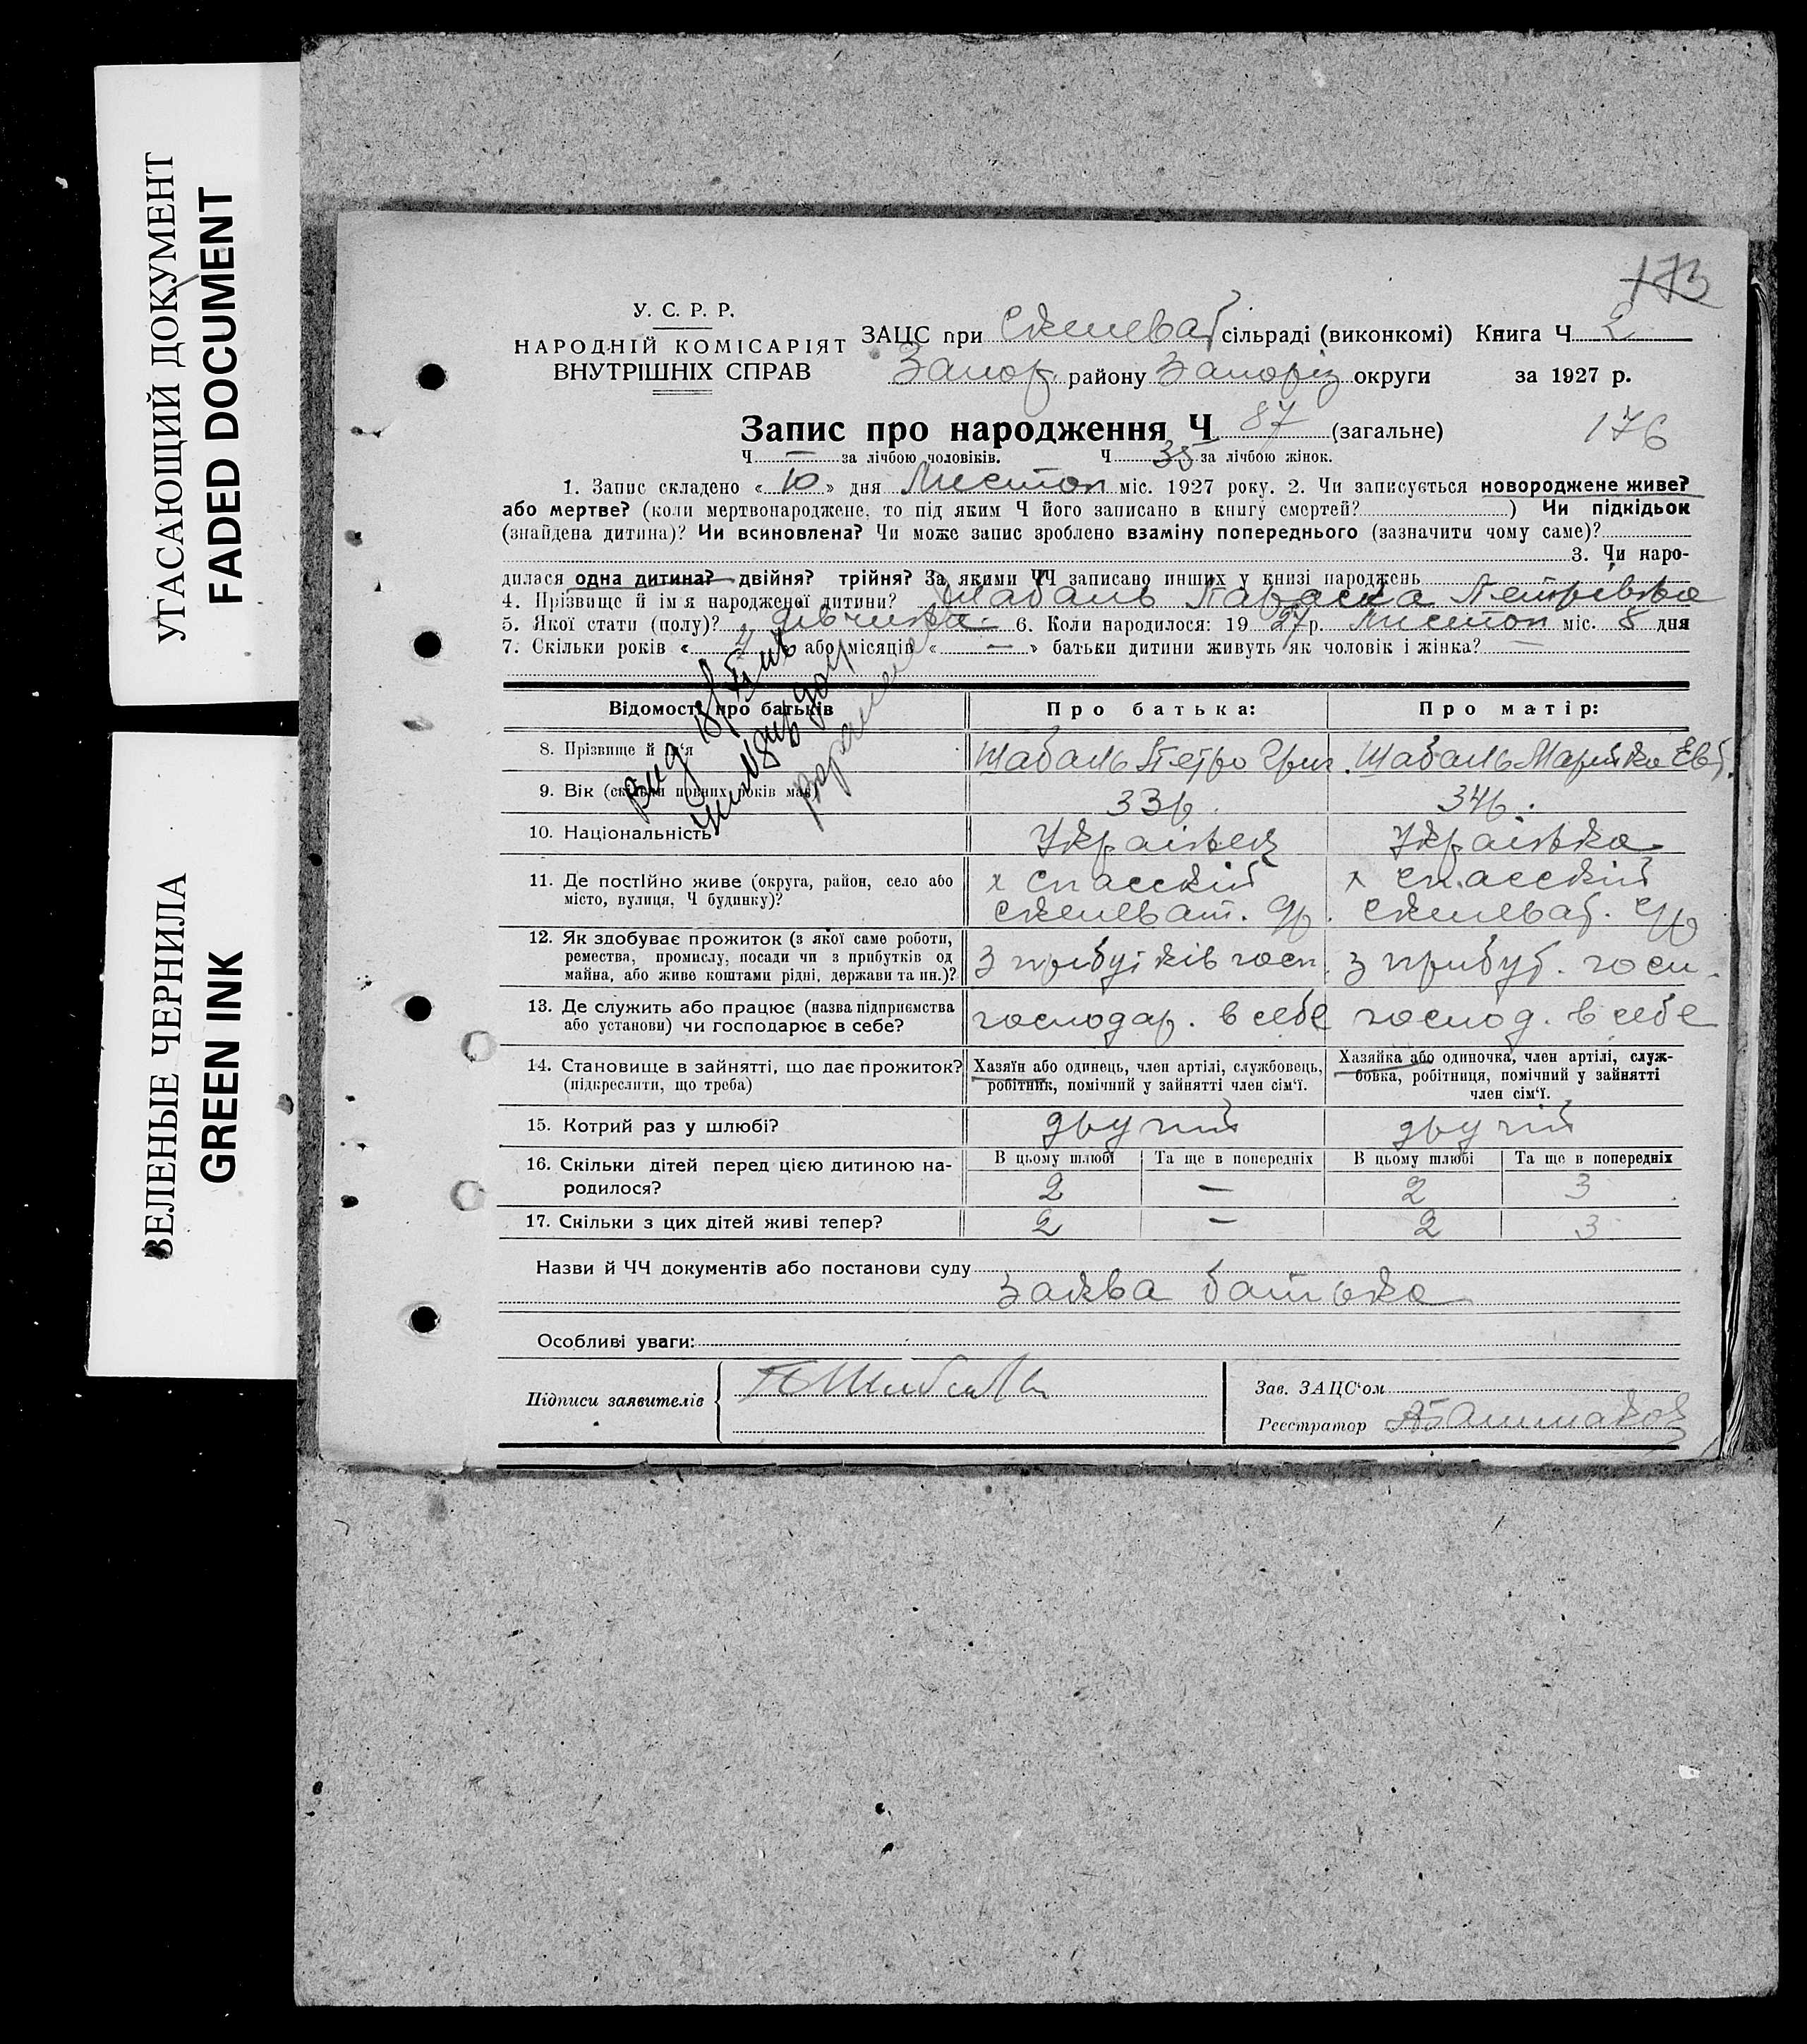 УГАСАЮЩИЙ ДОКУМЕНТ
FADED DOCUMENT
ЗЕЛЕНЫЕ ЧЕРНИЛА
GREEN INK
173
У. С. Р. Р.
НАРОДНІЙ КОМІСАРІЯТ
ВНУТРІШНІХ СПРАВ
ЗАЦС при Скелеват сільраді (виконкомі) Книга Ч 2
Запор. району Запоріз округи за 1927 р.
Запис про народження Ч 87 (загальне) 176
Ч — за лічбою чоловіків. Ч 35 за лічбою жінок.
1. Запис складено « 10 » дня Листоп міс. 1927 року. 2. Чи записується новороджене живе?
або мертве? (коли мертвонароджене, то під яким Ч його записано в книгу смертей? ) Чи підкідьок
(знайдена дитина)? Чи всиновлена? Чи може запис зроблено взаміну попереднього (зазначити чому саме)?
3. Чи наро-
дилася одна дитина? двійня? трійня? За якими ЧЧ записано инших у книзі народжень
4. Прізвище й ім'я народженої дитини? Шабаль Параска Петрівна
5. Якої стати (полу)? Дівчина. 6. Коли народилося: 19 27 р. Листоп міс. 8 дня
7. Скільки років « 4 » або місяців « — » батьки дитини живуть як чоловік і жінка? —
Відомості про батьків
Про батька:
Про матір:
8. Прізвище й ім'я
Шабаль Петро Григ.
Шабаль Марійка Евт.
9. Вік (скільки повних років має)
33 р.
34 р.
10. Національність
Українець
Українка
11. Де постійно живе (округа, район, село або
місто, вулиця, Ч будинку)?
х Спасский
Скелеват.
х Спасский
Скелеват.
12. Як здобуває прожиток (з якої саме роботи,
ремества, промислу, посади чи з прибутків од
майна, або живе коштами рідні, держави та ин.)?
з прибутків госп.
з прибут. госп.
13. Де служить або працює (назва підприємства
або установи) чи господарює в себе?
господар. в себе
господ. в себе
14. Становище в зайнятті, що дає прожиток?
(підкреслити, що треба)
Хазяїн або одинець, член артілі, службовець,
робітник, помічний у зайнятті член сім'ї.
Хазяйка або одиночка, член артілі, служ-
бовка, робітниця, помічний у зайнятті
член сім'ї.
15. Котрий раз у шлюбі?
другий
другий
16. Скільки дітей перед цією дитиною на-
родилося?
В цьому шлюбі Та ще в попередніх В цьому шлюбі Та ще в попередніх
2 — 2 3
17. Скільки з цих дітей живі тепер?
2 — 2 3
Назви й ЧЧ документів або постанови суду
заява батька
Особливі уваги:
Підписи заявителів
Зав. ЗАЦС'ом
Реєстратор